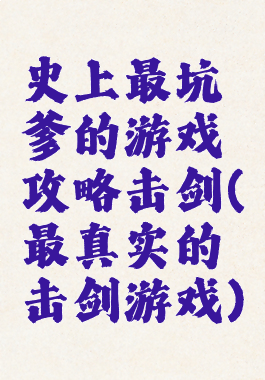 史上最坑
爹的游戏
攻略击剑(
最真实的
击剑游戏)